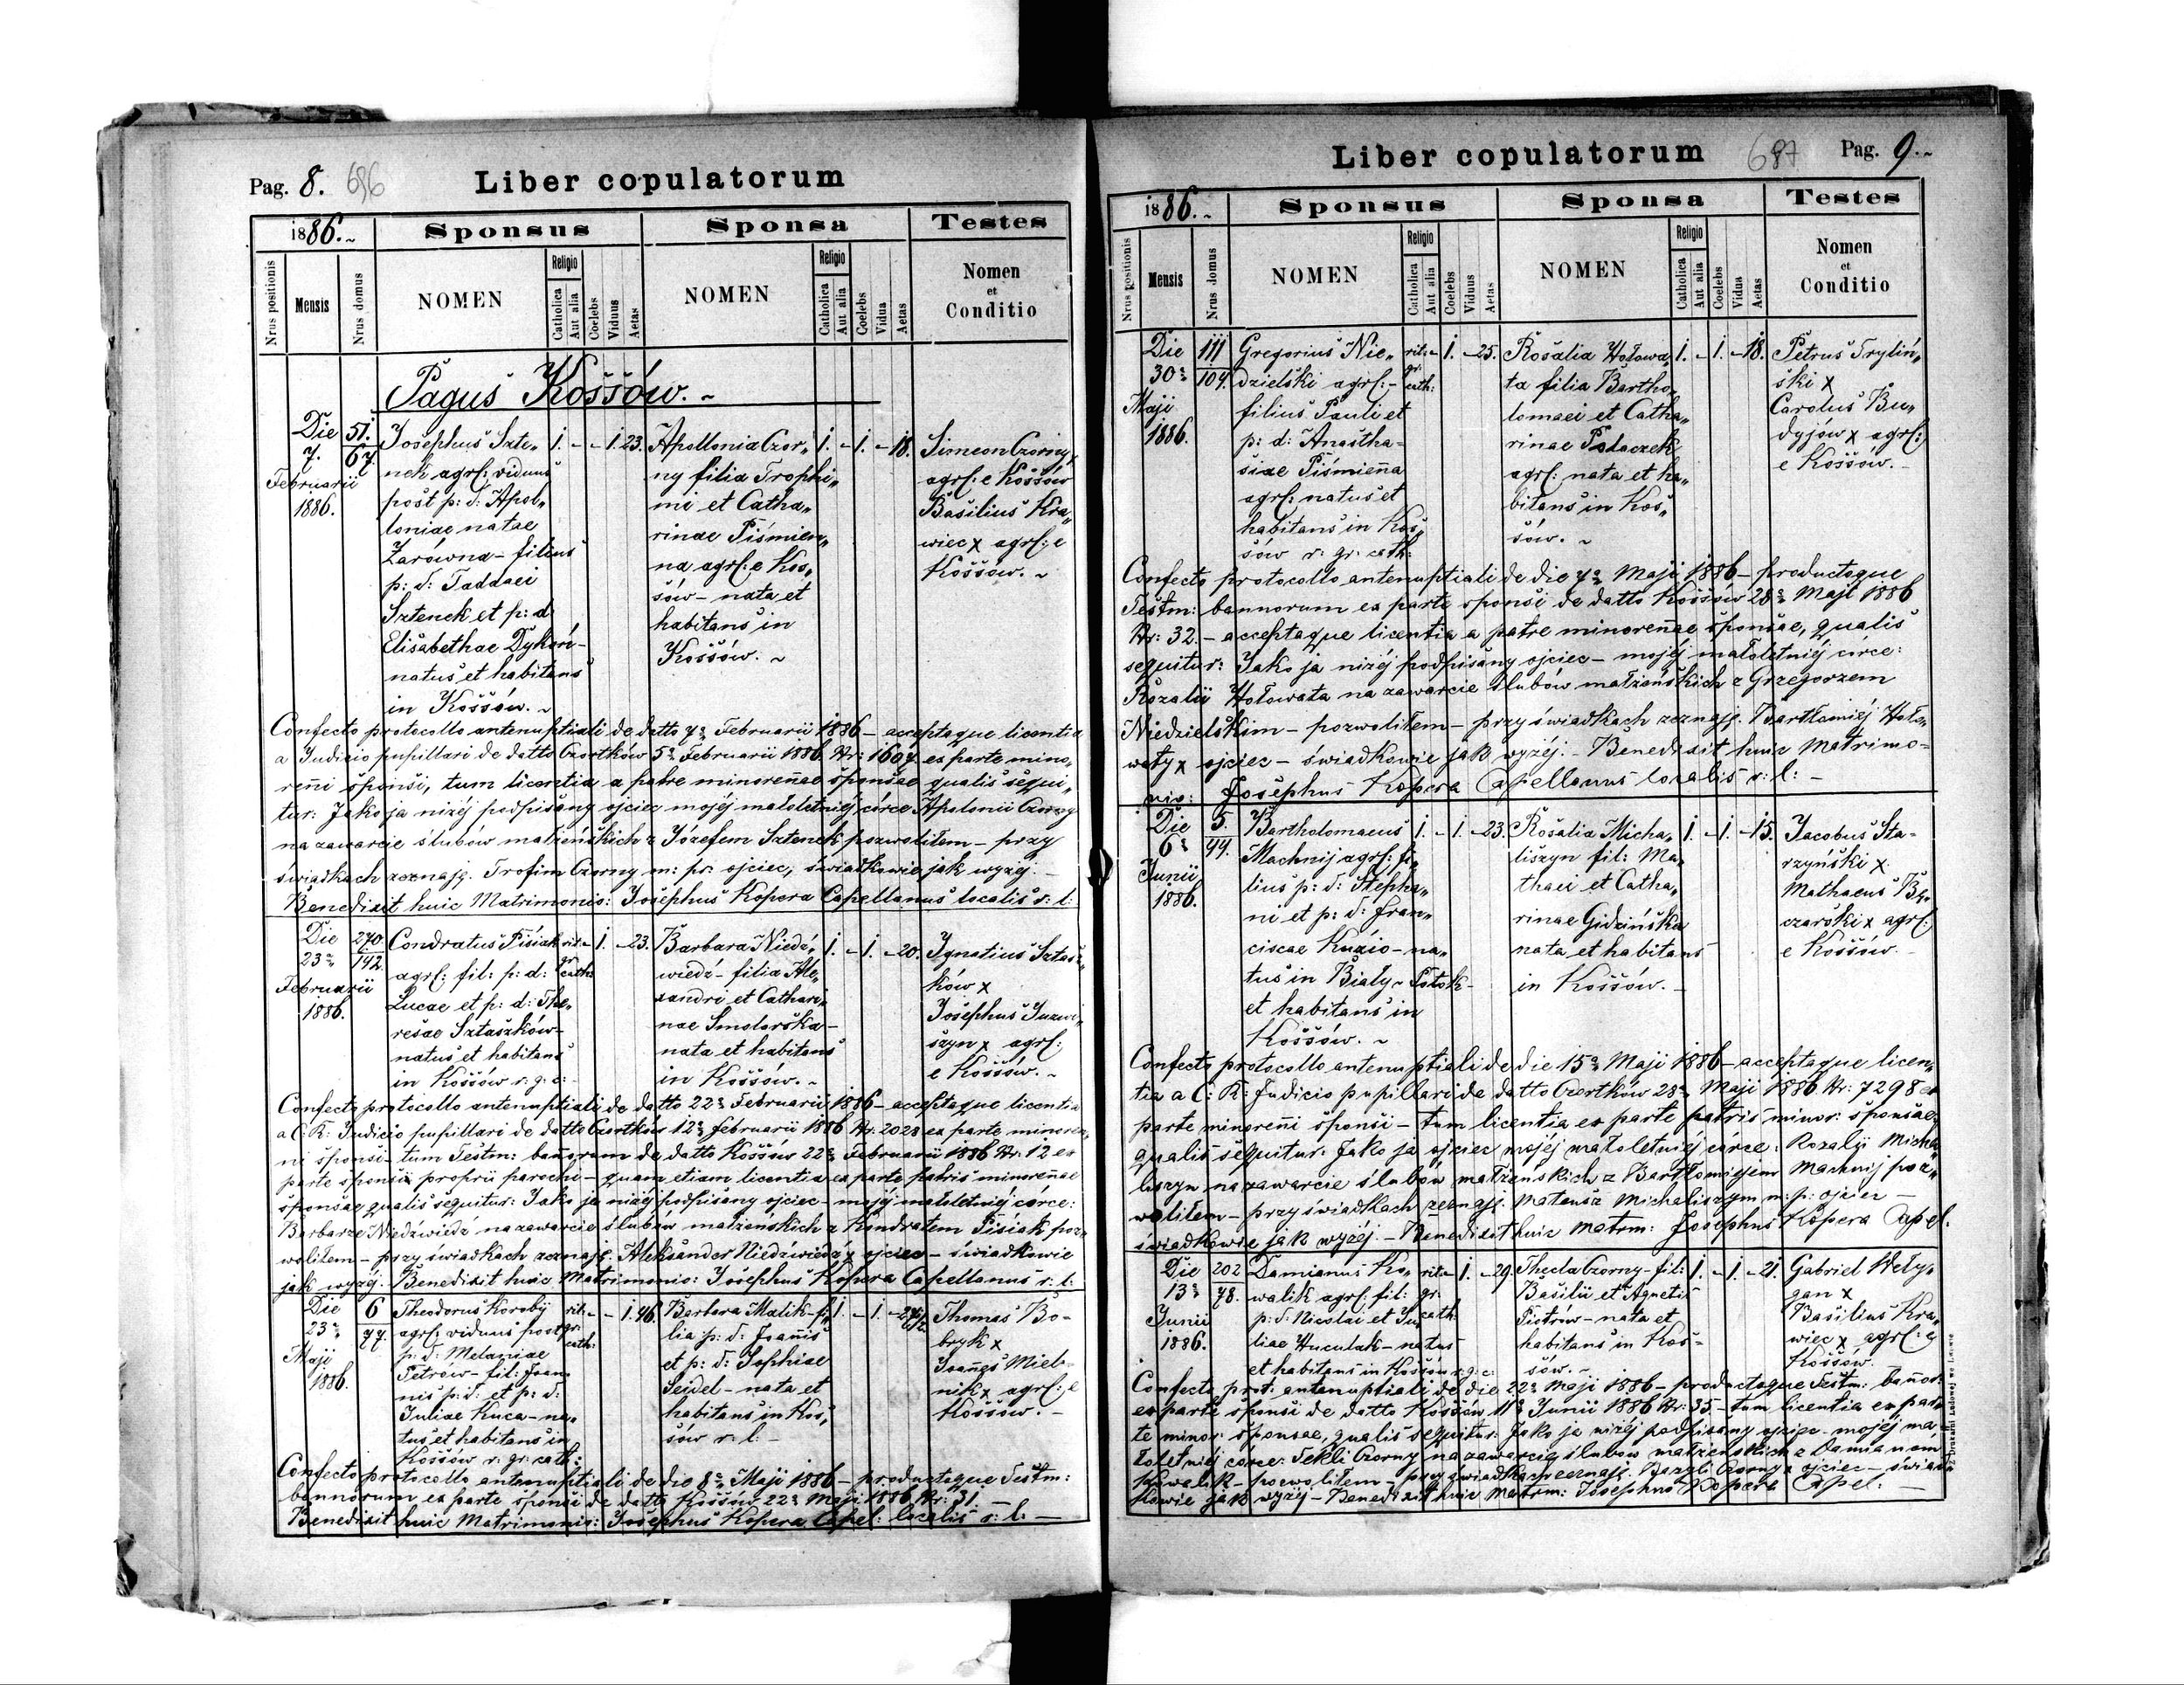 Pag. 8. 696
Liber copulatorum
1886.
Sponsus
Sponsa
Testes
Nrus positionis
Mensis
Nrus domus
NOMEN
Religio
Catholica
Aut alia
Coelebs
Viduus
Aetas
NOMEN
Religio
Catholica
Aut alia
Coelebs
Vidua
Aetas
Nomen
et
Conditio
Pagus Kossów.
Die
7.
Februarii
1886.
51.
67.
Josephus Szte„
nek agrl: viduus
post p: d: Apol„
loniae natae
Zarówna - filius
p: d: Taddaei
Sztenek et p: d
Elisabethae Dykoń-
natus et habitans
in Kossów.
1. - - 1. 23.
Apollonia Czor„
ny filia Trophi„
mi et Catha„
rinae Piśmien„
na agrl: e Kos„
sów - nata et
habitans in
Kossów.
1. - 1. - 18.
Simeon Czorny x
agrl: e Kossów
Basilius Kra„
wiec x agrl: e
Kossów.
Confecto protocollo antenuptiali de datto 7a Februarii 1886 - acceptaque licentia
a Judicio pupillari de datto Czortków 5a Februarii 1886 Nr: 1607 ex parte mino„
renni sponsi, tum licentia a patre minorennae sponsae qualis sequi„
tur: Jako ja niżéj podpisany ojciec mojéj małoletniéj córce Apolonii Czorny
na zawarcie ślubów małżeńskich z Józefem Sztenek pozwoliłem - przy
świadkach zeznaję. Trofim Czorny m: pr: ojciec, świadkowie jak wyżéj. -
Benedixit huic Matrimonio: Josephus Kopera Capellanus localis r: l:
Die
23a
Februarii
1886.
270.
142.
Condratus Pisiak
agrl: fil: p: d:
Lucae et p: d: The„
resae Sztaszków-
natus et habitans
in Kossów r: g: c:
rit:
gr:
cath:
1. - 23.
Barbara Niedź„
wiedź - filia Ale„
xandri et Cathari„
nae Smolorska-
nata et habitans
in Kossów.
1. - 1. - 20.
Ignatius Sztasz„
ków x
Josephus Juzwi„
szyn x agrl:
e Kossów.
Confecto protocollo antenuptiali de datto 22a Februarii 1886 - acceptaque licentia
a C: K: Judicio pupillari de datto Czortków 12a februarii 1886 Nr: 2028 ex parte minoren„
ni sponsi - tum Testm: bannorum de datto Kossów 22a Februarii 1886 Nr: 12 ex
parte sponsi proprii parochi - quam etiam licentia ex parte patris minorennae
sponsae qualis sequitur: Jako ja niżéj podpisany ojciec - mojéj małoletniéj córce:
Barbarze Niedźwiedź na zawarcie ślubów małżeńskich z Kondratem Pisiak poz„
woliłem - przy świadkach zeznaję. Aleksander Niedźwiedź x ojciec - świadkowie
jak wyżéj. Benedixit huic Matrimonio: Josephus Kopera Capellanus r: l:
Die
23a
Maji
1886.
6
77.
Theodorus Koroby
agrl: viduus post
p: d: Melaniae
Petrów - fil: Joan„
nis p: d: et p: d:
Juliae Kuca - na„
tus et habitans in
Kossów r: gr: cath:
rit:
gr:
cath:
- 1. 46.
Barbara Malik - fi„
lia p: d: Joannis
et p: d: Sophiae
Seidel - nata et
habitans in Kos„
sów r: l: -
1. - 1. - 24
Thomas Bo-
bryk x
Joannes Miel-
nik x agrl: e
Kossów. -
Confecto protocollo antenuptiali de die 8a Maji 1886 - productoque Testm:
bannorum ex parte sponsi de datto Kossów 22a Maji 1886 Nr: 31. -
Benedixit huic Matrimonio: Josephus Kopera Capel: localis r: l: -
Liber copulatorum
697 Pag. 9.
1886.
Sponsus
Sponsa
Testes
Nrus positionis
Mensis
Nrus domus
NOMEN
Religio
Catholica
Aut alia
Coelebs
Viduus
Aetas
NOMEN
Religio
Catholica
Aut alia
Coelebs
Vidua
Aetas
Nomen
et
Conditio
Die
30a
Maji
1886.
111
104.
Gregorius Nie„
dzielski agrl: -
filius Pauli et
p: d: Anastha-
siae Piśmienna
agrl: natus et
habitans in Kos„
sów r: gr: cath:
rit:
gr:
cath:
1. - 25.
Rosalia Hołowa„
ta filia Bartho„
lomaei et Catha„
rinae Połaczek
agrl: nata et ha„
bitans in Kos„
sów.
1. - 1. - 18.
Petrus Tryliń„
ski x
Carolus Bu„
dyjów x agrl:
e Kossów. -
Confecto protocollo antenuptiali de die 7a Maji 1886 - productoque
Testm: bannorum ex parte sponsi de datto Kossów 28a Maji 1886
Nr: 32. - acceptaque licentia a patre minorennae sponsae, qualis
sequitur: Jako ja niżéj podpisany ojciec - mojéj małoletniéj córce:
Rozalii Hołowata na zawarcie ślubów małżeńskich z Grzegorzem
Niedzielskim - pozwoliłem - przy świadkach zeznaję. Bartłomiéj Hoło„
waty x ojciec - świadkowie jak wyżéj. - Benedixit huic Matrimo-
nio: Josephus Kopera Capellanus localis r: l: -
Die
6a
Junii
1886.
5.
44.
Bartholomaeus
Machnij agrl: fi„
lius p: d: Stepha„
ni et p: d: Fran„
ciscae Kuzio - na„
tus in Biały - Potok-
et habitans in
Kossów.
1. - 1. - 23.
Rosalia Micha„
liszyn fil: Ma„
thaei et Catha„
rinae Gidzińska
nata et habitans
in Kossów. -
1. - 1. - 15.
Jacobus Sta-
rzyński x
Mathaeus Be„
czarski x agrl:
e Kossów. -
Confecto protocollo antenuptiali de die 15a Maji 1886 - acceptaque licen„
tia a C: K: Judicio pupillari de datto Czortków 28a Maji 1886 Nr: 7298 ex
parte minorenni sponsi - tum licentia ex parte patris minor: sponsae
qualis sequitur: Jako ja ojciec mojéj małoletniéj córce: Rozalii Micha„
liszyn na zawarcie ślubów małżeńskich z Bartłomiejem Machnij poz„
woliłem - przy świadkach zeznaję. Mateusz Michaliszyn m: p: ojciec -
świadkowie jak wyżéj. - Benedixit huic Matrm: Josephus Kopera Capel.
Die
13a
Junii
1886.
202
78.
Damianus Ko„
walik agrl: fil:
p: d: Nicolai et Ju„
liae Huculak - natus
et habitans in Kossów r: g: c:
rit:
gr:
cath:
1. - 29.
Thecla Czorny - fil:
Basilii et Agnetis
Piotrów - nata et
habitans in Kos-
sów. -
1. - 1. - 21.
Gabriel Wely„
gan x
Basilius Kra„
wiec x agrl: e
Kossów.
Confecto prot: antenuptiali de die 22a Maji 1886 - productoque Testm: bannor:
ex parte sponsi de datto Kossów 11a Junii 1886 Nr: 35 - tum licentia ex par„
te minor: sponsae, qualis sequitur: Jako ja niżéj podpisany ojciec - mojéj ma„
łoletniéj córce: Tekli Czorny na zawarcie ślubów małżeńskich z Damianem
Kowalik - pozwoliłem - przy świadkach zeznaję. Bazyli Czorny x ojciec - świad„
kowie jak wyżéj - Benedixit huic Matrm: Josephus Kopera Capel: -